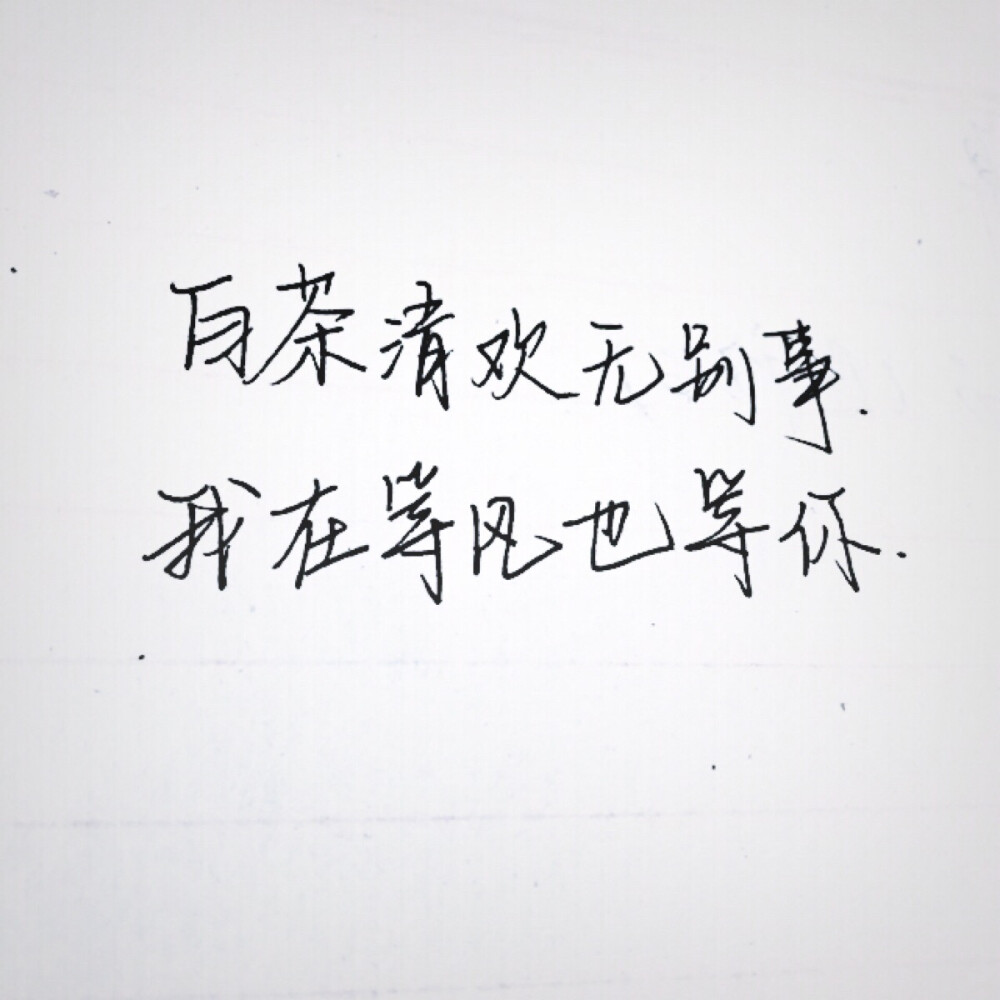 白茶清欢无别事.
我在等风也等你.